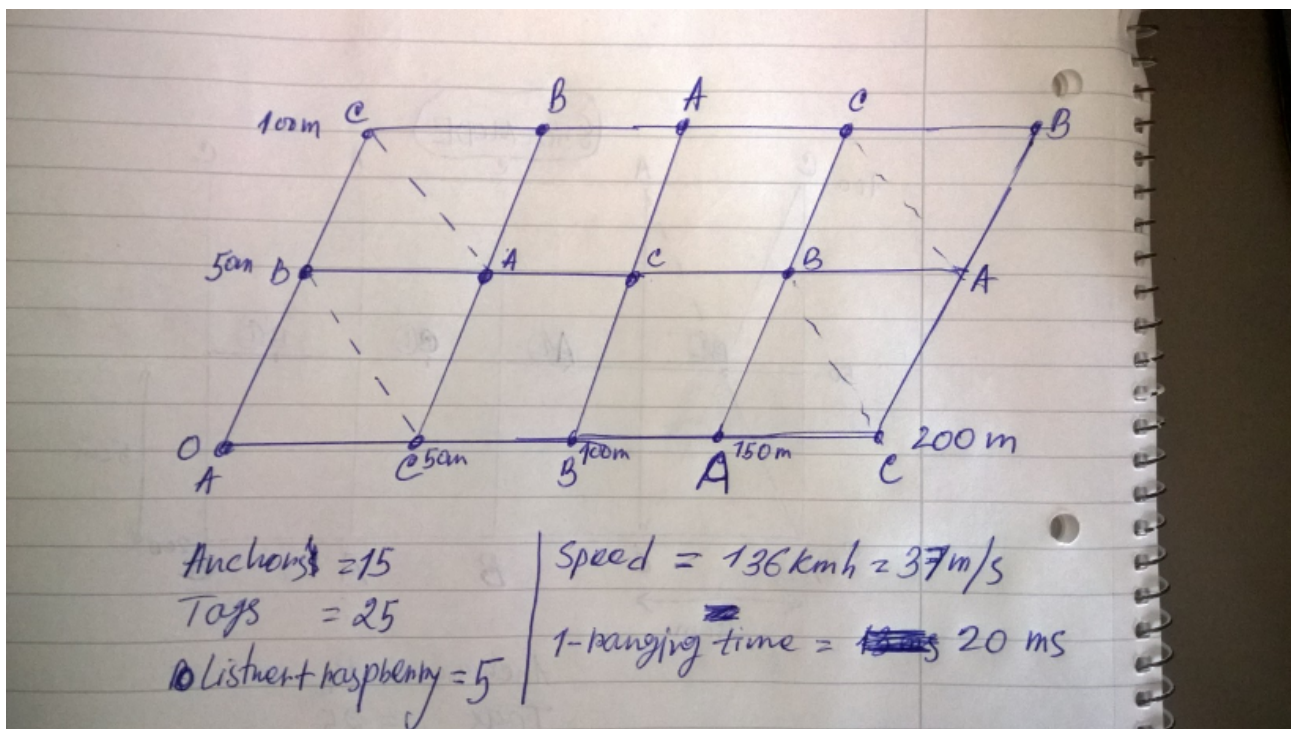 100m C B A C B
50m B A C B A
O A C 50m B 100m A 150m C 200m
Anchors = 15
Tags = 25
Listner + raspberry = 5
Speed = 136 kmh = 37m/s
1-ranging time = 20 ms